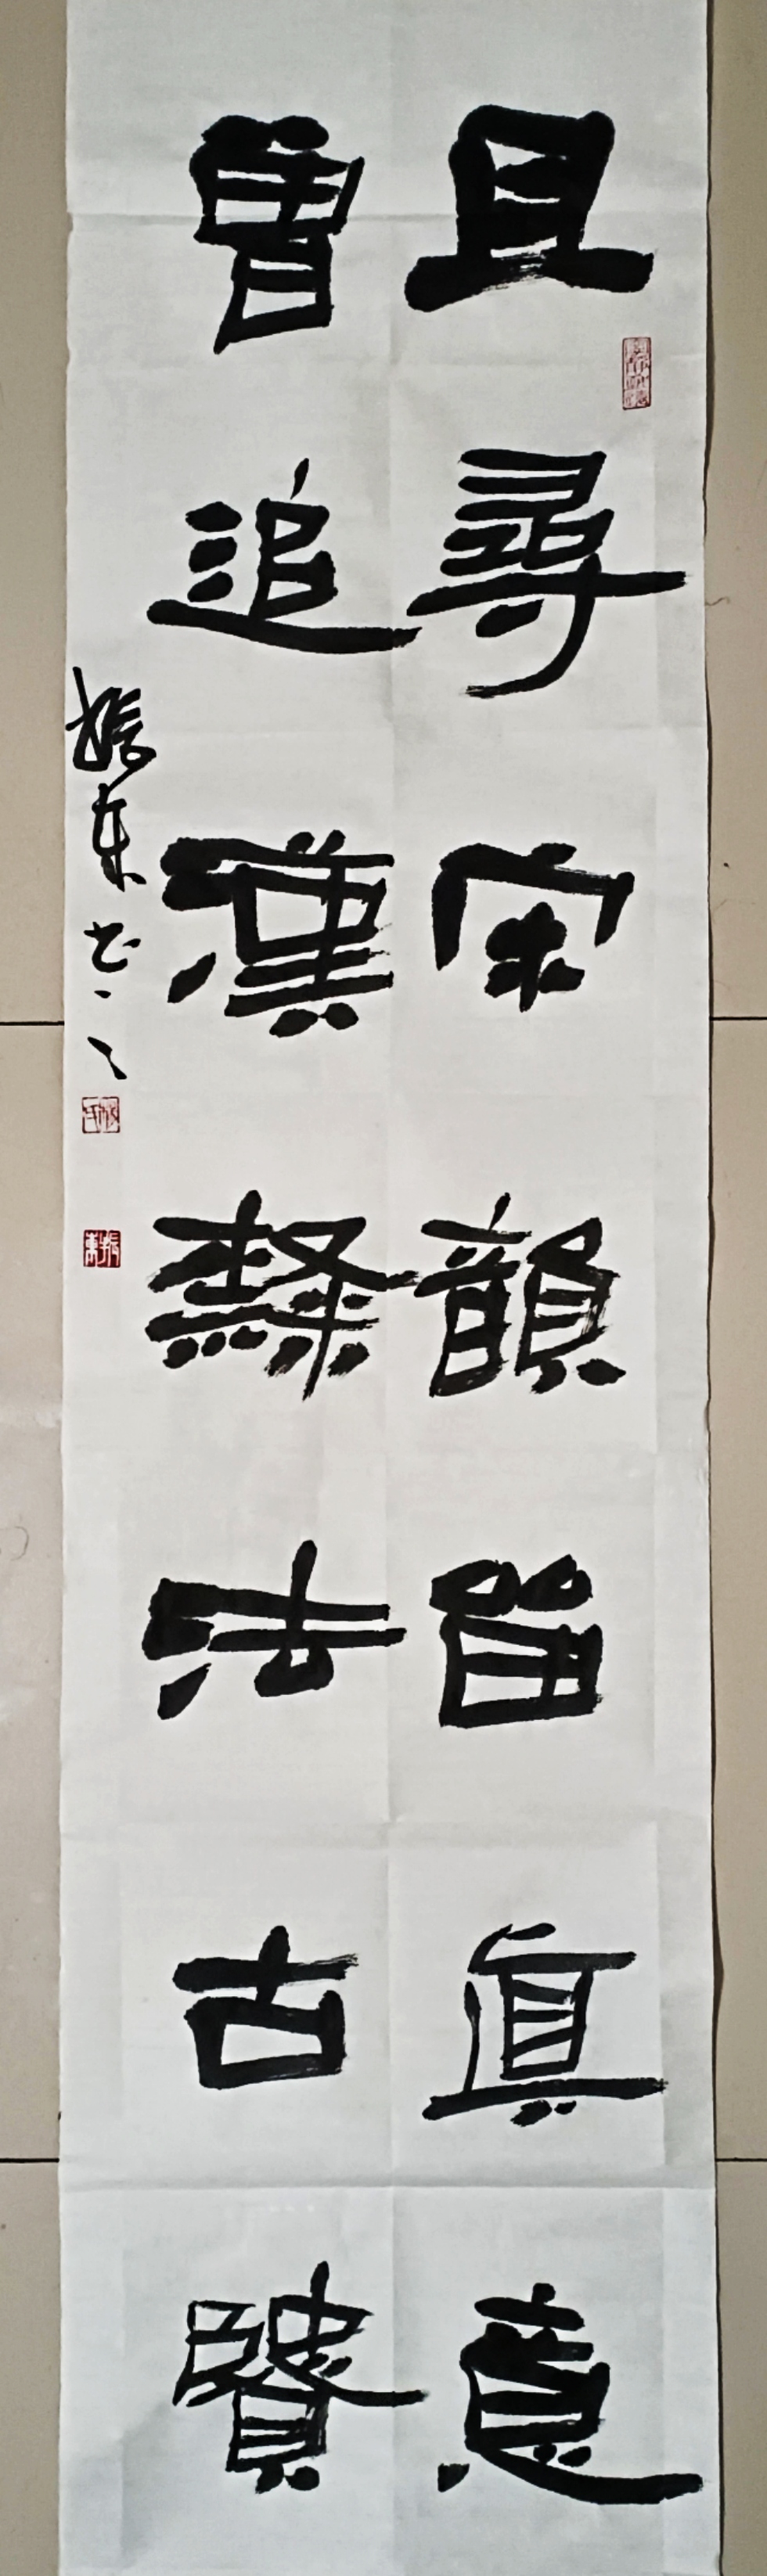 且尋宋韻留真意
曾追漢隸法古賢
振東書
振東